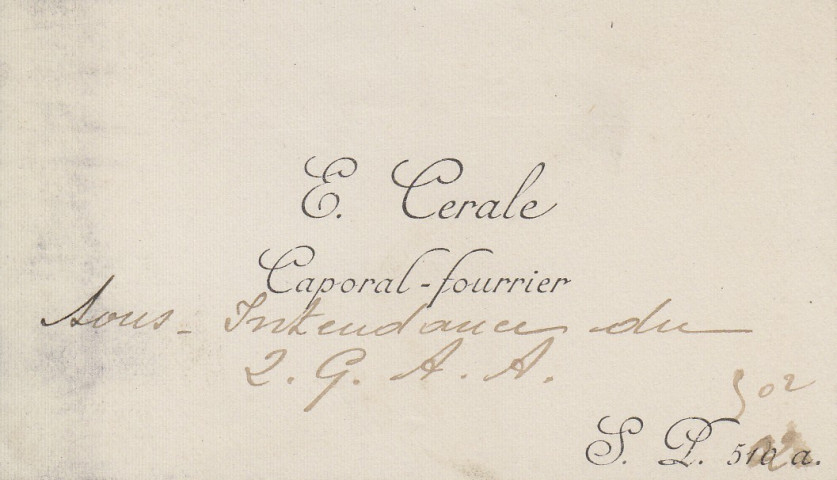 E. Cerale
Caporal-fourrier
Sous-Intendance du
2. G. A. A.
502
S. P. 510 a.